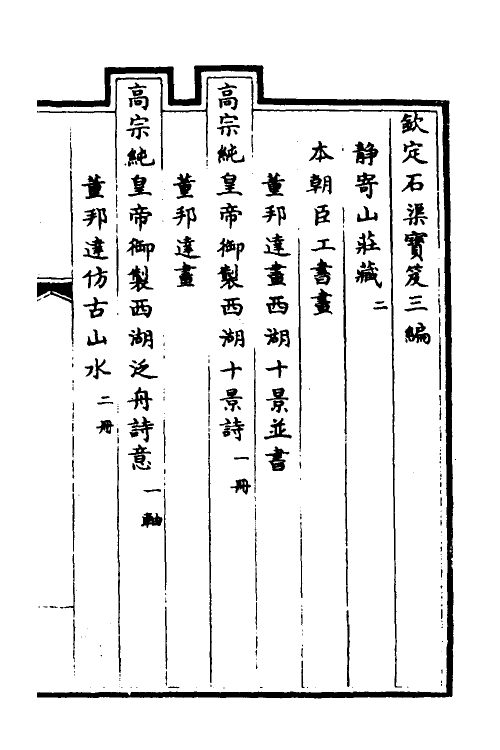 欽定石渠寶笈三編
静寄山莊藏二
本朝臣工書畫
董邦達畫西湖十景並書
高宗純皇帝御製西湖十景詩一冊
董邦達畫
高宗純皇帝御製西湖泛舟詩意一軸
董邦達仿古山水二冊